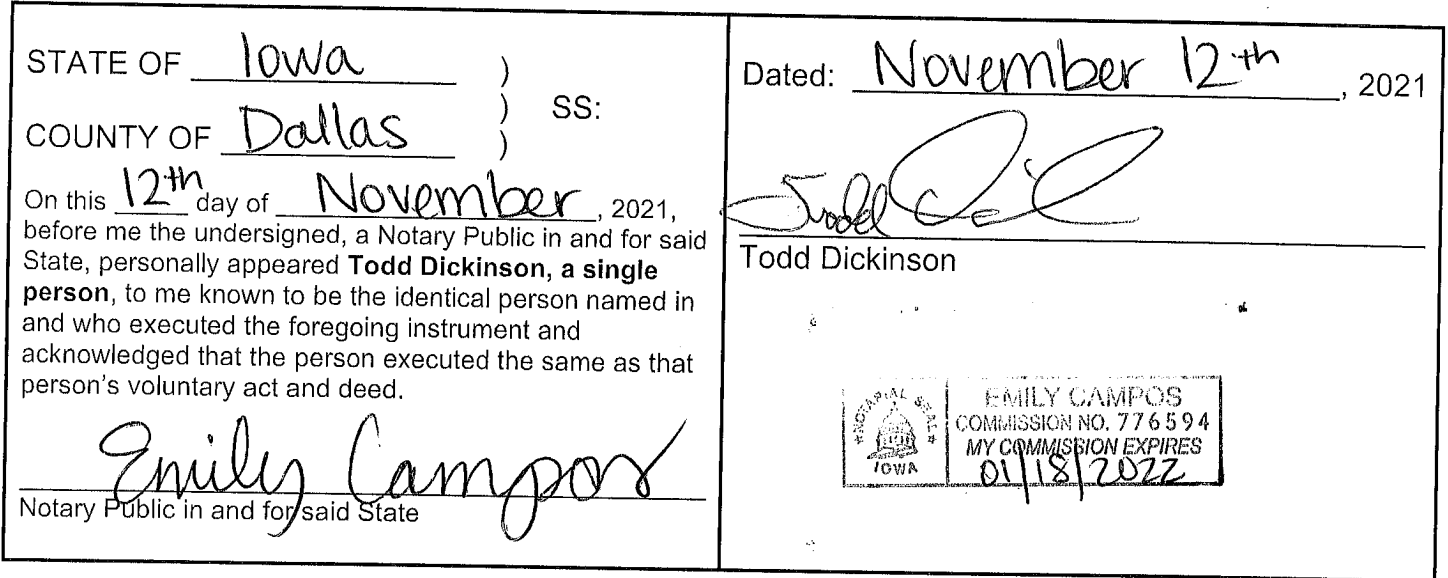 STATE OF Iowa )
) SS:
COUNTY OF Dallas )
On this 12th day of November, 2021,
before me the undersigned, a Notary Public in and for said
State, personally appeared Todd Dickinson, a single
person, to me known to be the identical person named in
and who executed the foregoing instrument and
acknowledged that the person executed the same as that
person's voluntary act and deed.
Emily Campos
Notary Public in and for said State
Dated: November 12th, 2021
Todd
Todd Dickinson
NOTARIAL SEAL
IOWA
EMILY CAMPOS
COMMISSION NO. 776594
MY COMMISSION EXPIRES
01/18/2022